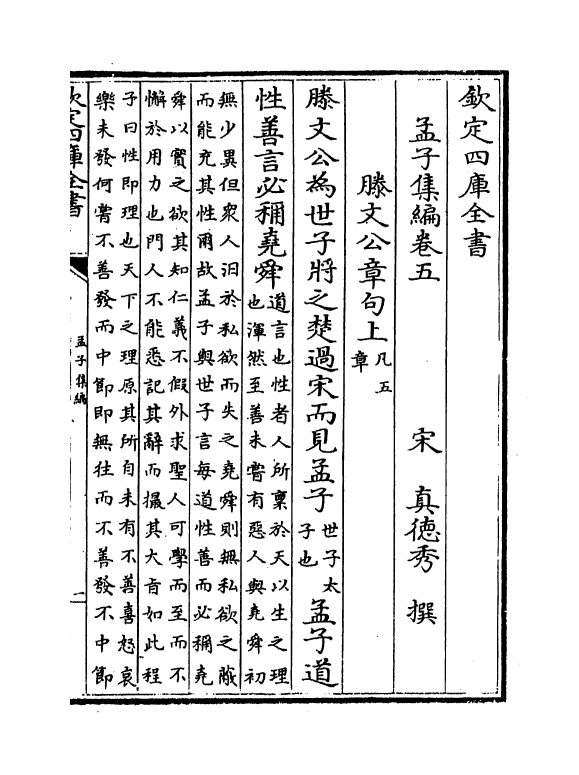 欽定四庫全書
孟子集編卷五
宋 真德秀 撰
滕文公章句上凡五
章
滕文公為世子將之楚過宋而見孟子世子太
子也
孟子道
性善言必稱堯舜道言也性者人所稟於天以生之理
也渾然至善未嘗有惡人與堯舜初
無少異但衆人汨於私欲而失之堯舜則無私欲之蔽
而能充其性爾故孟子與世子言每道性善而必稱堯
舜以實之欲其知仁義不假外求聖人可學而至而不
懈於用力也門人不能悉記其辭而撮其大旨如此程
子曰性即理也天下之理原其所自未有不善喜怒哀
樂未發何嘗不善發而中節即無往而不善發不中節
欽定四庫全書
孟子集編
一